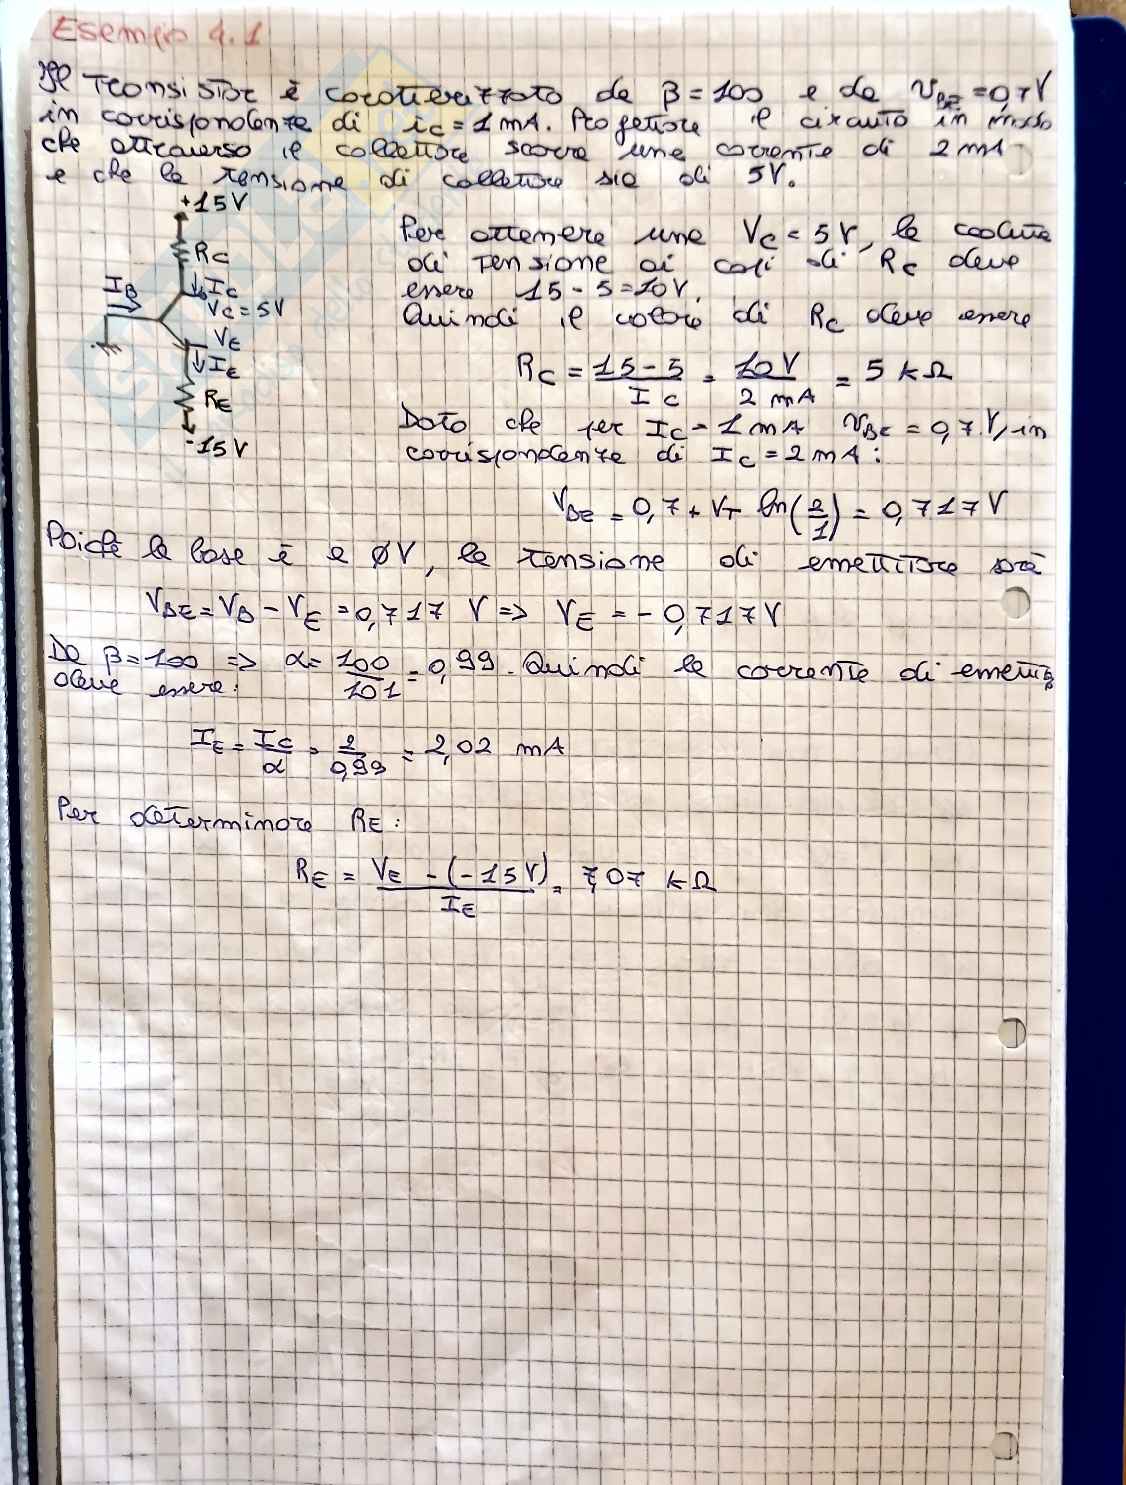 Esempio 4.1
Il Transistor è caratterizzato da β = 100 e da VBE = 0,7V
in corrispondenza di ic = 1 mA. Progettare il circuito in modo
che attraverso il collettore scorra una corrente di 2 mA
e che la tensione di collettore sia di 5V.
+15V
RC
IB
IC
VC = 5V
VE
IE
RE
-15V
Per ottenere una VC = 5V, la caduta
di tensione ai capi di RC deve
essere 15 - 5 = 10V.
Quindi il valore di RC deve essere
RC = 15 - 5 / IC = 10V / 2 mA = 5 kΩ
Dato che per IC = 1 mA VBE = 0,7 V, in
corrispondenza di IC = 2 mA:
VBE = 0,7 + VT ln(2/1) = 0,717 V
Poiché la base è a ØV, la tensione di emettitore sarà
VBE = VB - VE = 0,717 V => VE = - 0,717 V
Da β = 100 => α = 100/101 = 0,99. Quindi la corrente di emettit.
deve essere:
IE = IC/α = 2/0,99 = 2,02 mA
Per determinare RE:
RE = VE - (-15V) / IE = 7,07 kΩ